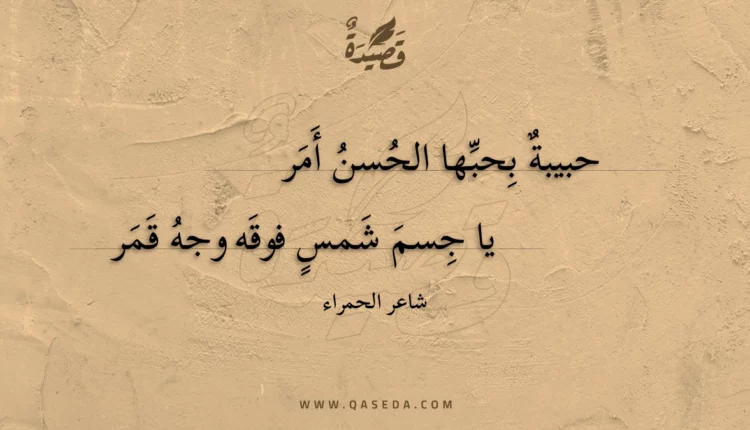 قَصِيدَةٌ
حبيبةٌ بِحبِّها الحُسنُ أَمَر
يا جِسمَ شَمسٍ فوقَه وجهُ قَمَر
شاعر الحمراء
WWW.QASEDA.COM